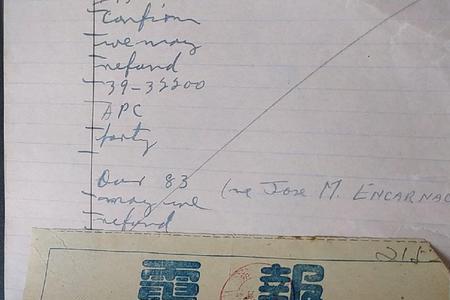 Confirm
we may
refund
39-35200
APC
forty
Our 83 (re Jose M. ENCARNAC
may we
refund
215
電報